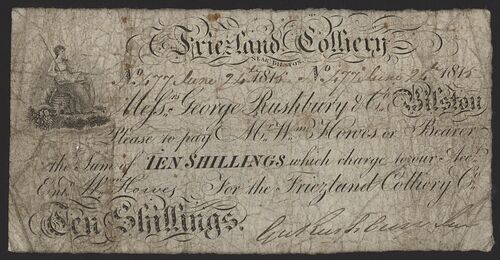 Friezland Colliery
NEAR BILSTON
No. 477 June 24th 1815 No. 477 June 24th 1815
Messrs George Rushbury & Co. Bilston
Please to pay Mr. Wm Howes or Bearer
the Sum of TEN SHILLINGS, which charge to our Acct.
Entd. Wm Howes For the Friezland Colliery Co.
Ten Shillings.